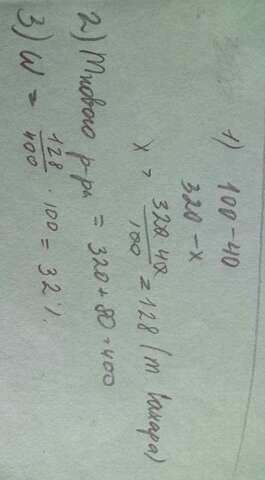 1) 100-40
320-x
x = \frac{320 \cdot 40}{100} = 128 (m сахара)
2) m нового р-ра = 320 + 80 = 400
3) W = \frac{128}{400} \cdot 100 = 32 %